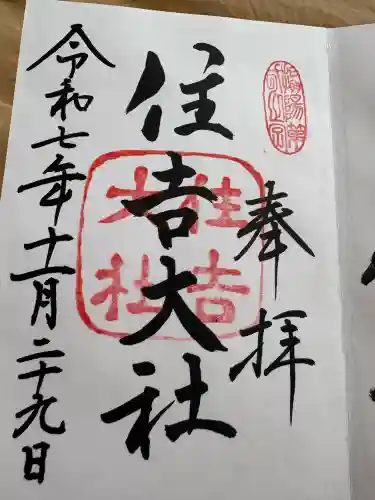 奉拝
住吉大社
住吉大社
令和七年十一月二十九日